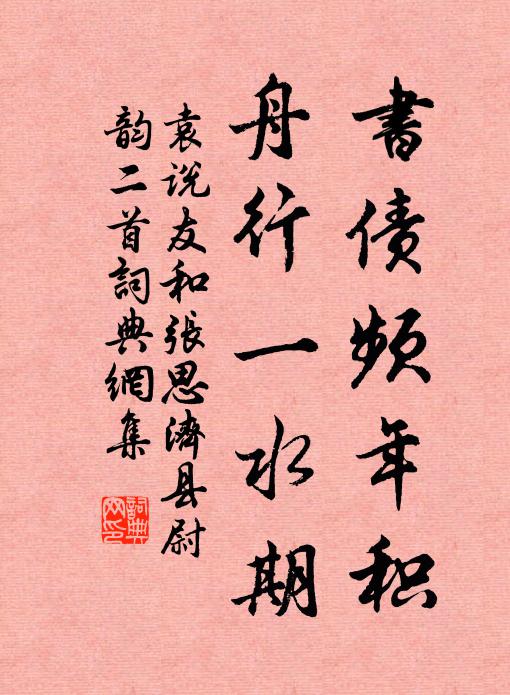 書债频年积
舟行一水期
袁说友和張思濟县尉
韵二首詞典網集
詞典
网印